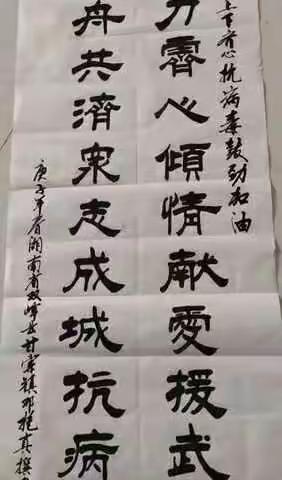 上下齐心抗病毒鼓劲加油
力霽心傾情献愛援武
舟共濟眾志成城抗病
庚子年春湖南省双峰县甘棠镇邓真撰